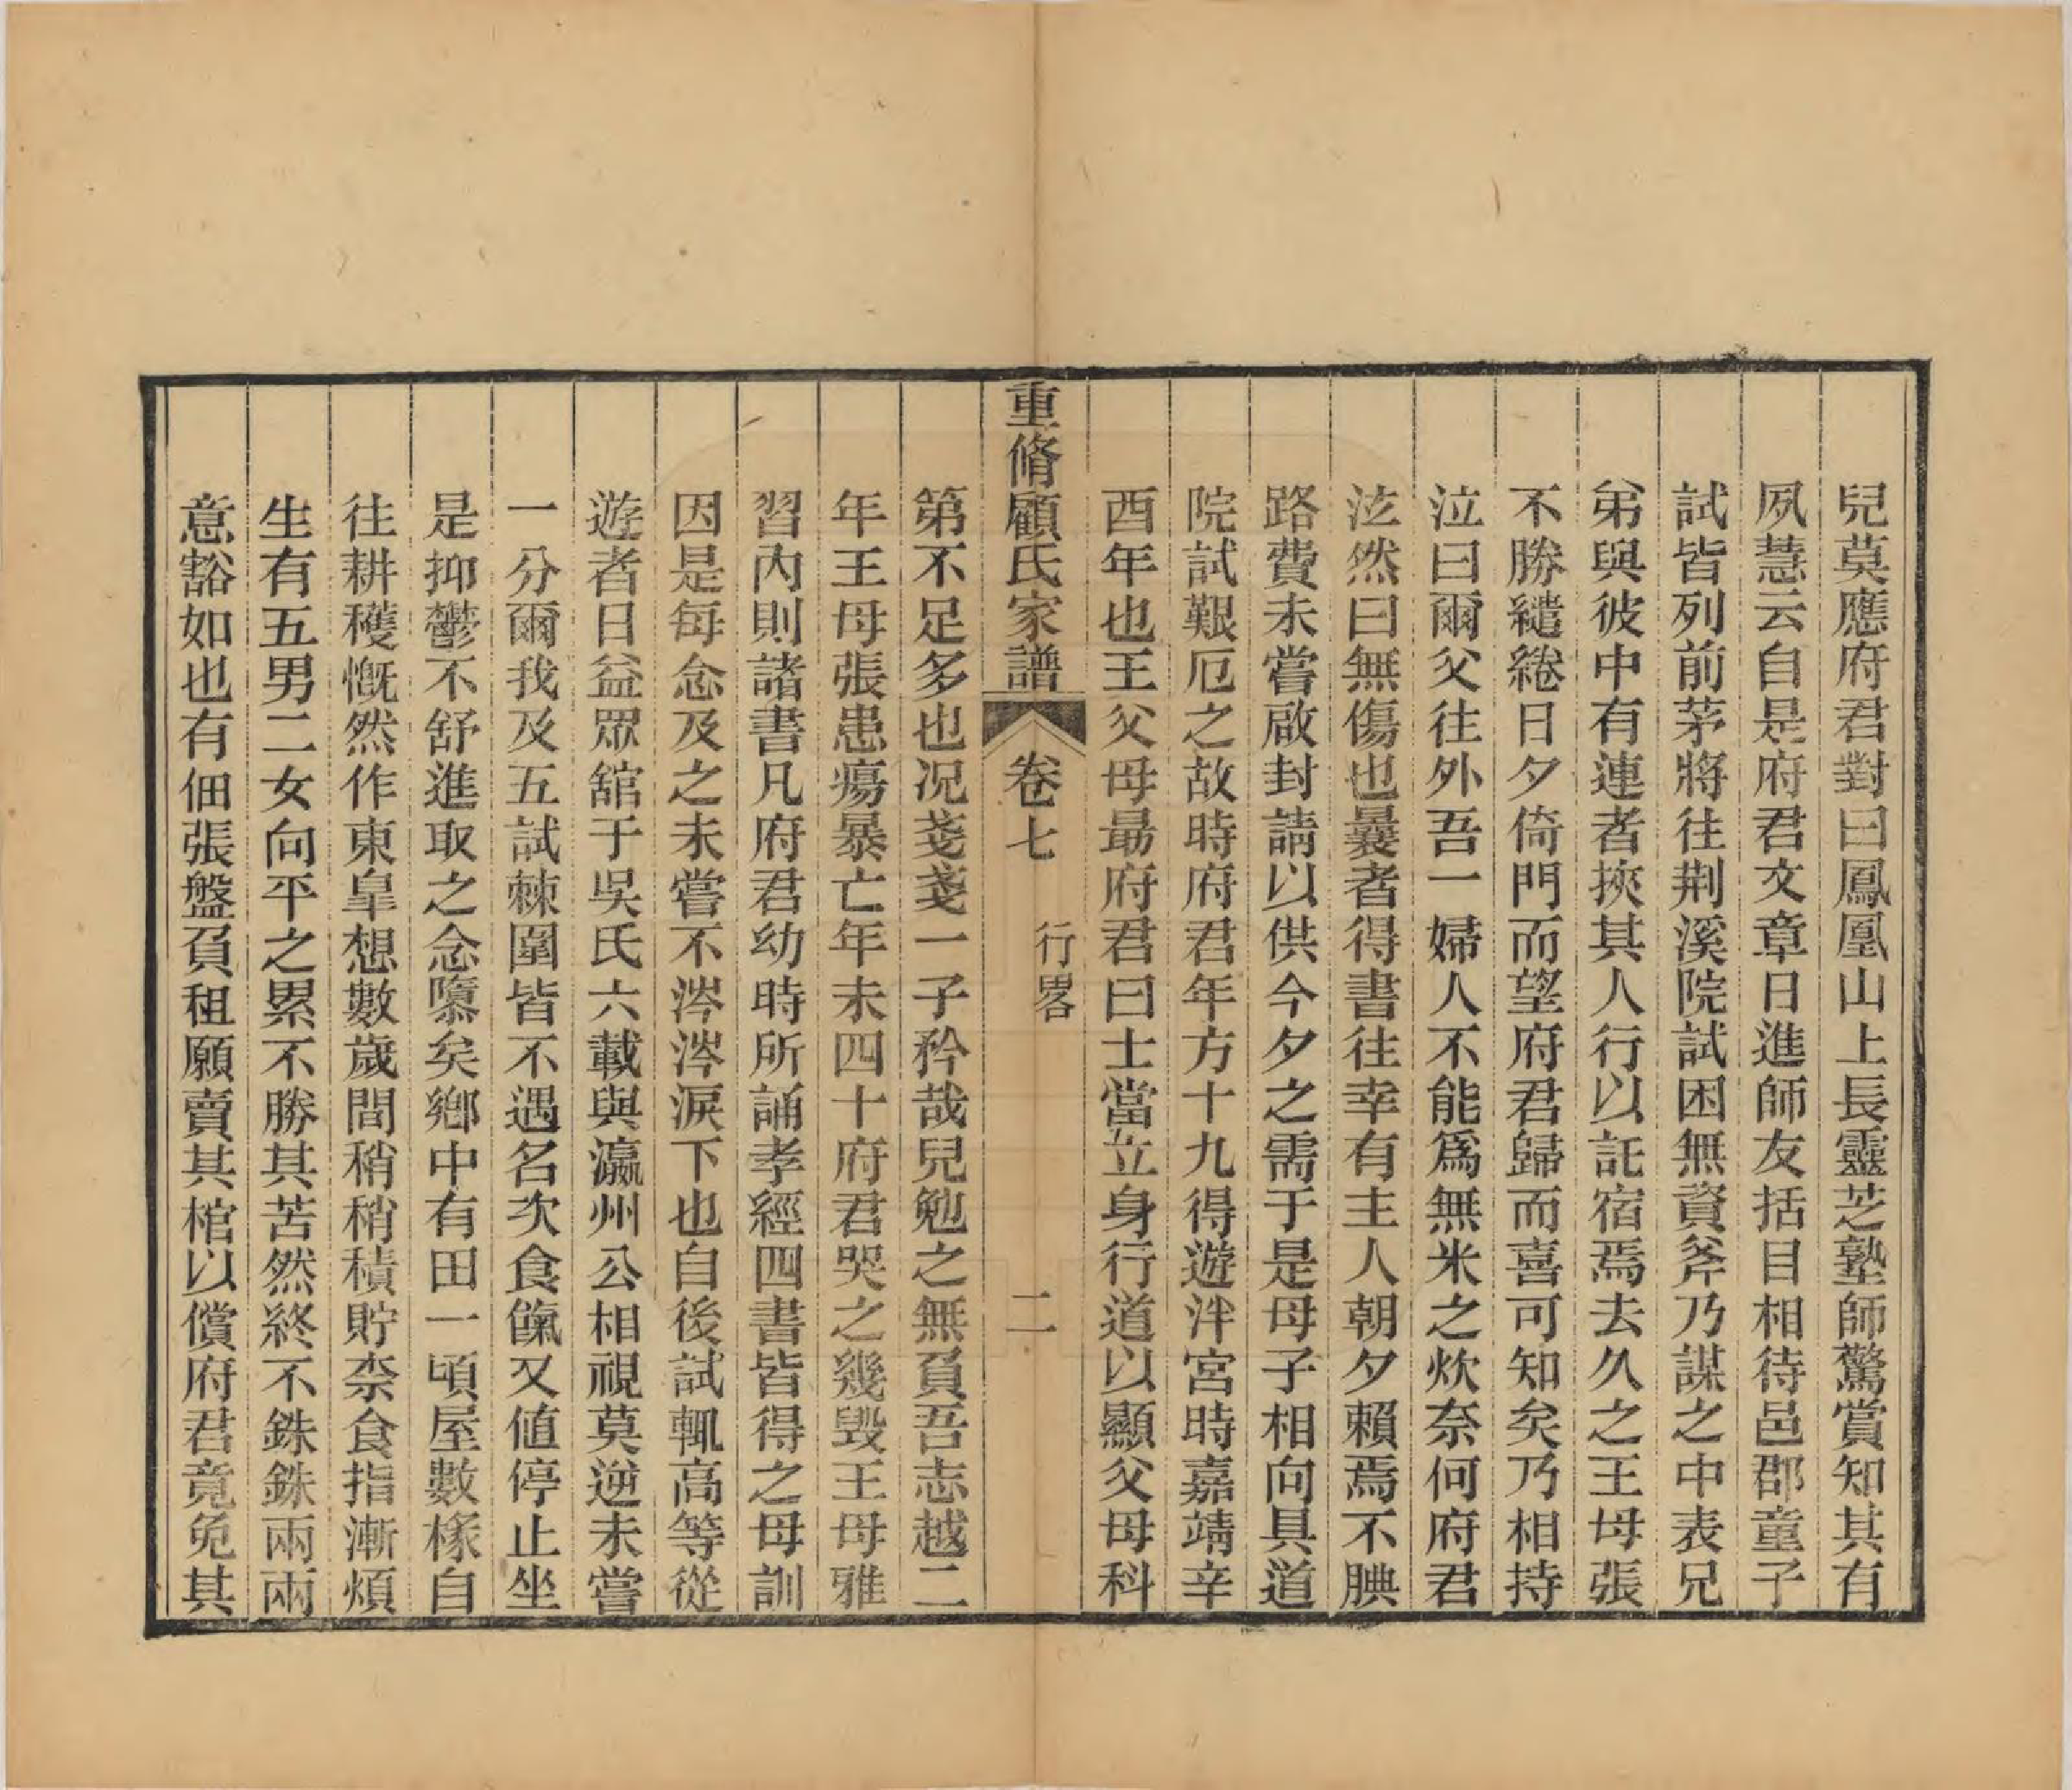 兒莫應府君對曰鳳凰山上長靈芝塾師驚賞知其有
夙慧云自是府君文章日進師友括目相待邑郡童子
試皆列前茅將往荆溪院試困無資斧乃謀之中表兄
弟與彼中有連者挾其人行以託宿焉去久之王母張
不勝繾綣日夕倚門而望府君歸而喜可知矣乃相持
泣曰爾父往外吾一婦人不能爲無米之炊奈何府君
泫然曰無傷也曩者得書往幸有主人朝夕賴焉不腆
路費未嘗啟封請以供今夕之需于是母子相向具道
院試艱厄之故時府君年方十九得遊泮宮時嘉靖辛
酉年也王父母朂府君曰士當立身行道以顯父母科
重脩顧氏家譜 卷七 行畧 二
第不足多也况戔戔一子矜哉兒勉之無負吾志越二
年王母張患瘍暴亡年未四十府君哭之幾毀王母雅
習內則諸書凡府君幼時所誦孝經四書皆得之母訓
因是每念及之未嘗不涔涔淚下也自後試輒高等從
遊者日益眾舘于吳氏六載與瀛州公相視莫逆未嘗
一分爾我及五試棘圍皆不遇名次食餼又値停止坐
是抑鬱不舒進取之念隳矣鄉中有田一頃屋數椽自
往耕穫慨然作東皐想數歲間稍稍積貯柰食指漸煩
生有五男二女向平之累不勝其苦然終不銖銖兩兩
意豁如也有佃張盤負租願賣其棺以償府君竟免其